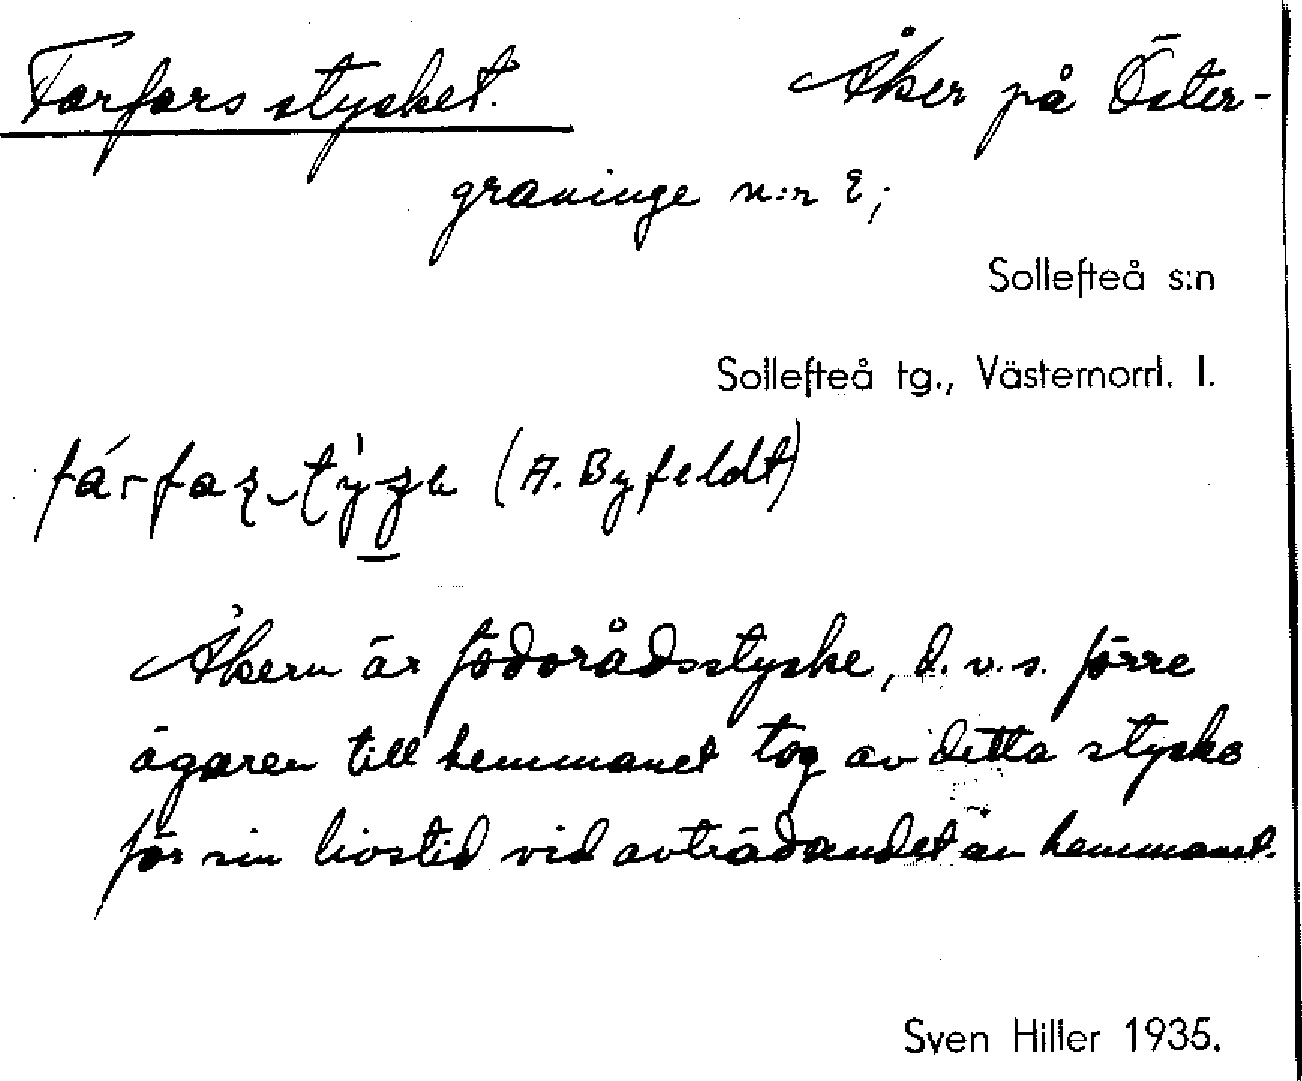 Farfars stycket. Åker på Öster-
graninge n:r 2;
Sollefteå s:n
Sollefteå tg., Västernorrl. l.
(A. Byfeldt)
Åkern är födorådsstycke, d.v.s. förre
ägaren till hemmanet tog av detta stycke
för sin livstid vid avträdandet av hemmanet.
Sven Hiller 1935.